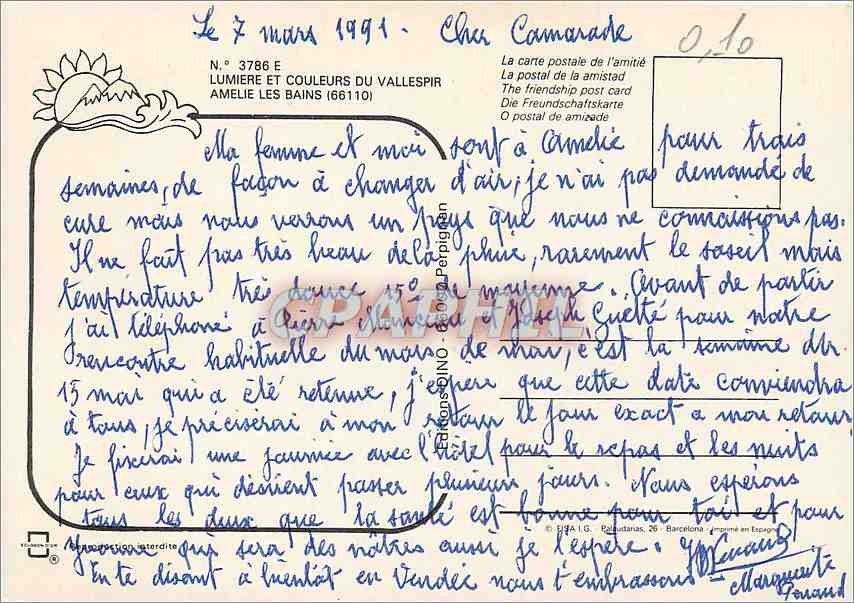 Le 7 mars 1991. Cher Camarade
0,10
N.º 3786 E
LUMIERE ET COULEURS DU VALLESPIR
AMELIE LES BAINS (66110)
La carte postale de l'amitié
La postal de la amistad
The friendship post card
Die Freundschaftskarte
O postal de amizade
Ma femme et moi sont à Amelie pour trois
semaines, de façon à changer d'air, je n'ai pas demandé de
cure mais nous verrons un pays que nous ne connaissions pas.
Il ne fait pas très beau de la pluie, rarement le soleil mais
température très douce 15º de moyenne. Avant de partir
j'ai téléphoné à Pierre et Joseph Guetté pour notre
rencontre habituelle du mois de mai, c'est la semaine du
15 mai qui a été retenue, j'espère que cette date conviendra
à tous, je préciserai à mon retour le jour exact a mon retour
Je fixerai une journée avec l'hôtel pour le repas et les nuits
pour ceux qui désirent passer plusieurs jours. Nous espérons
tous les deux que la santé est bonne pour toi et pour
Yvonne qui sera des nôtres aussi je l'espère.
En te disant à bientôt en Vendée nous t'embrassons
Marguerite
Renaud
Editions DINO - 66000 Perpignan
CPAPHIL
© FISA I.G. - Palaudarias, 26 - Barcelona - Imprimé en Espagne
Reproduction interdite
®